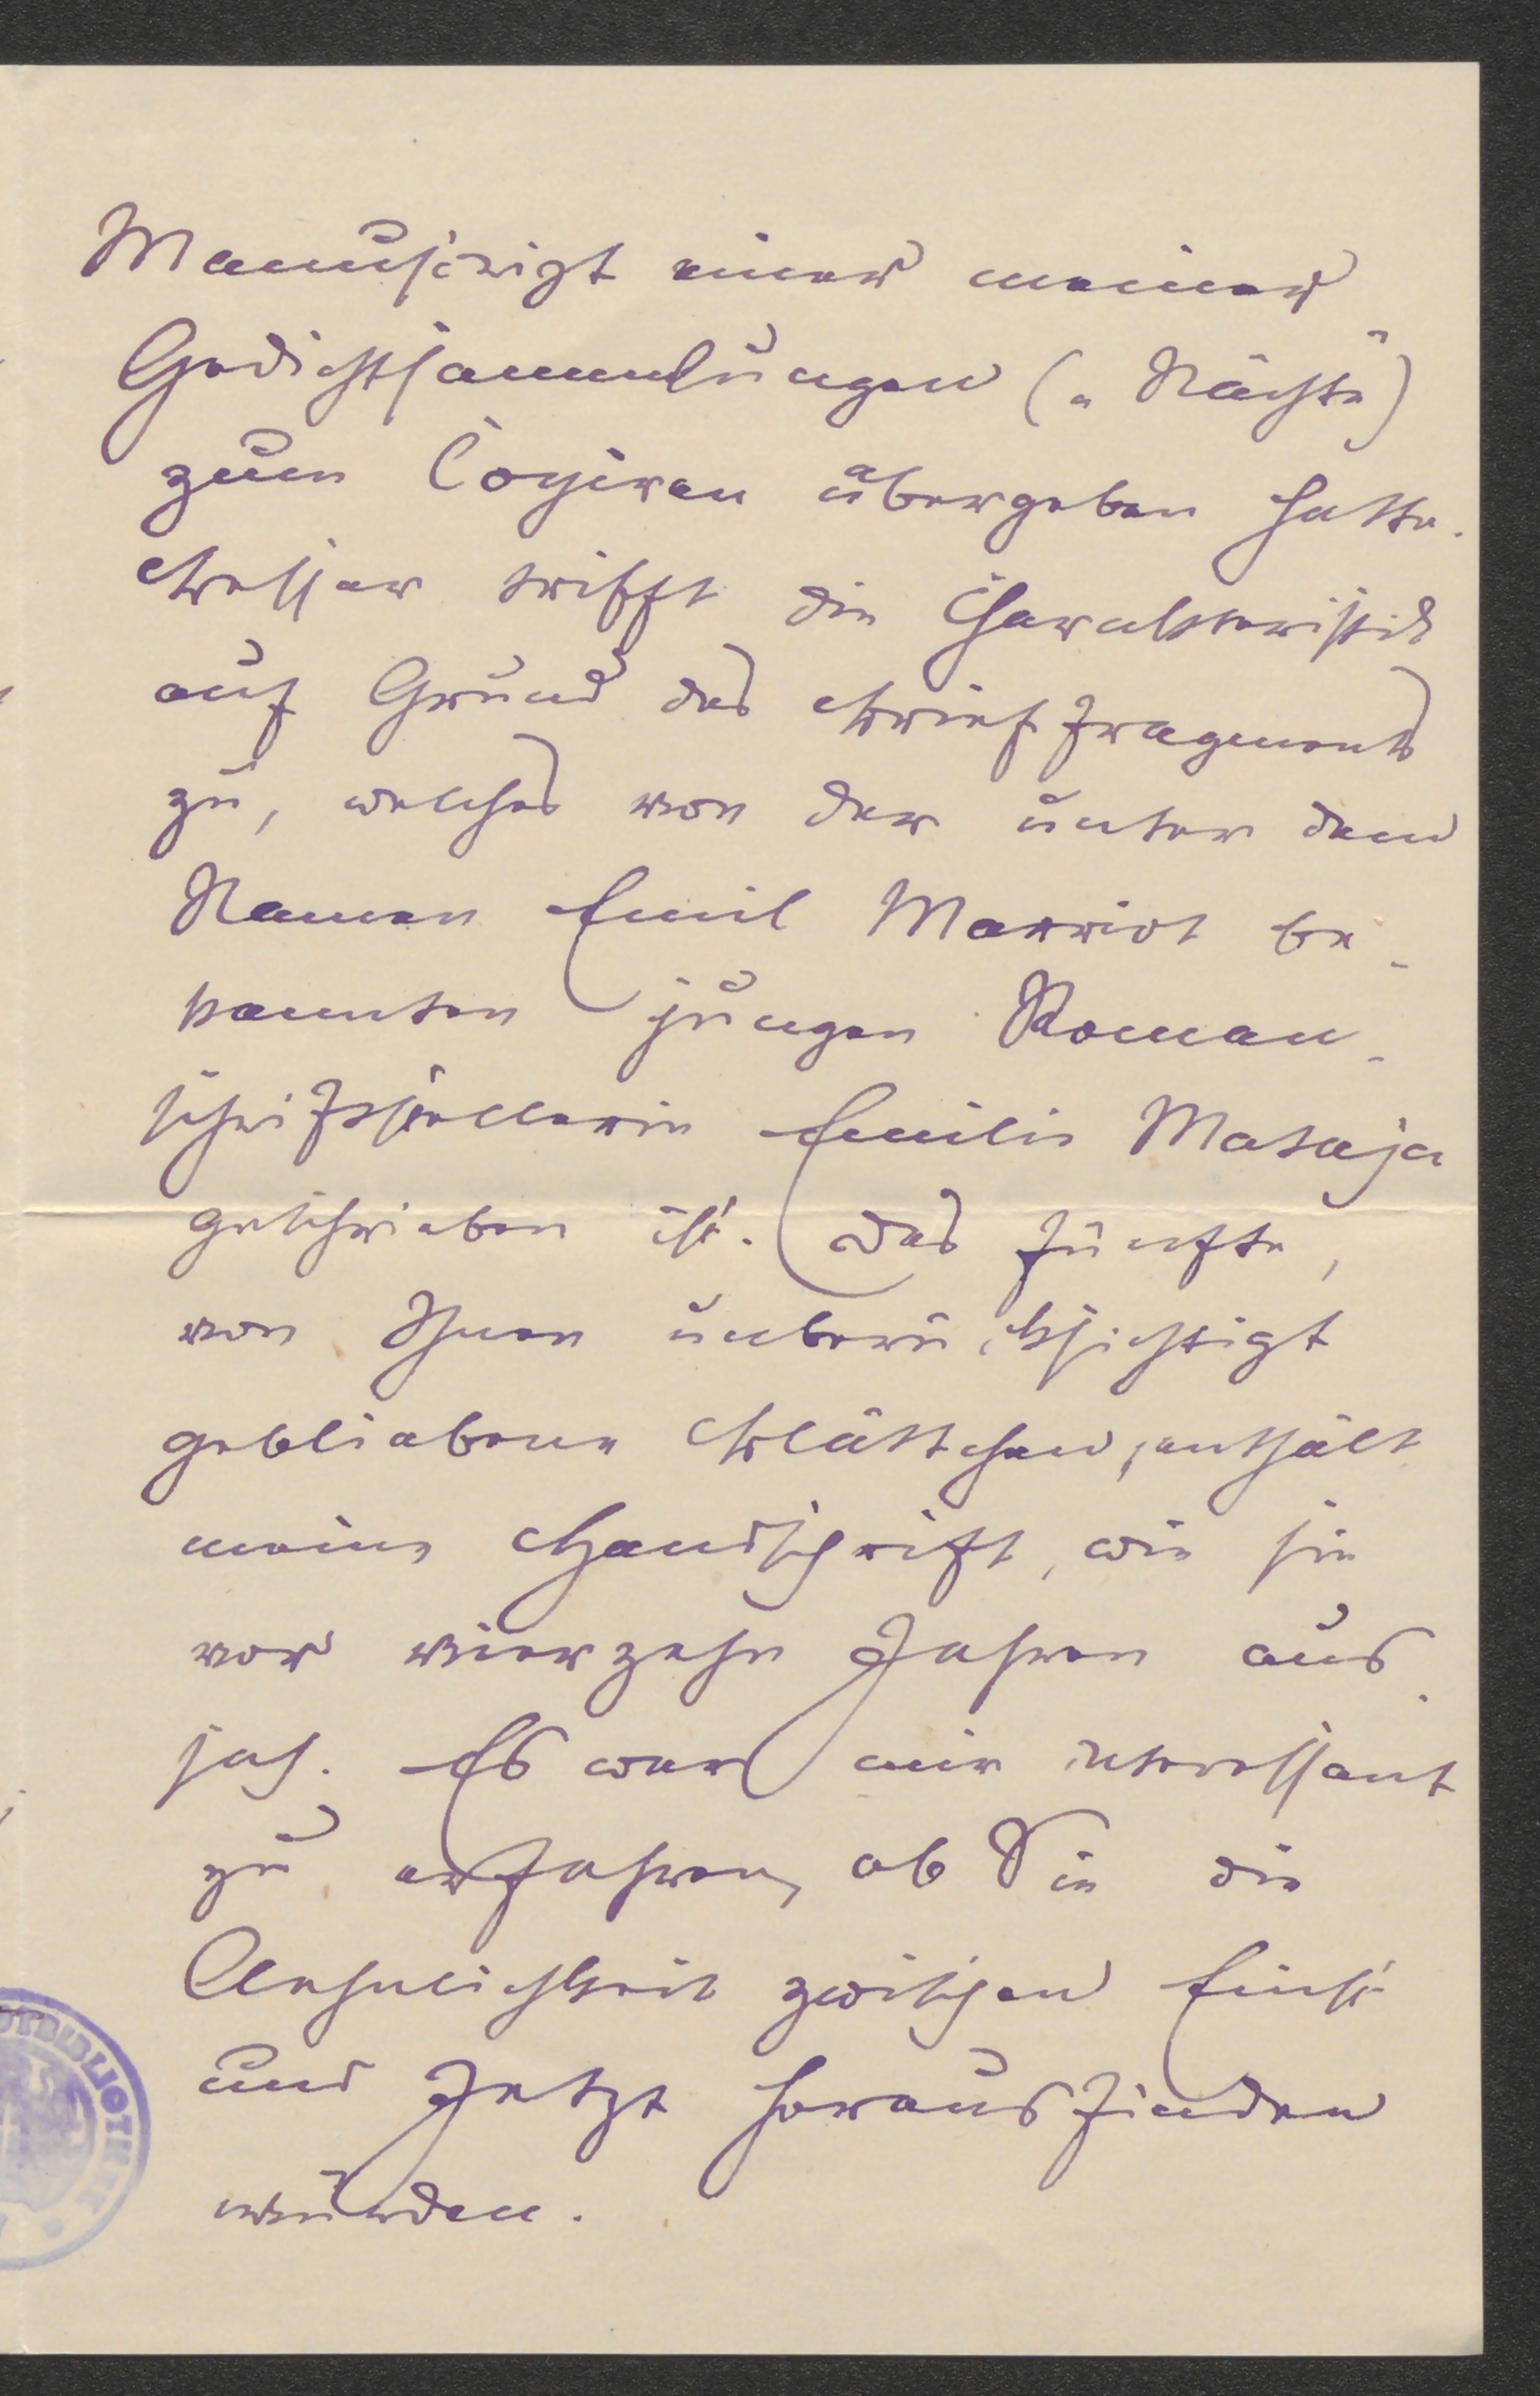 Manuscript einer meiner
Gedichtsammlungen („Nächte“)
zum Copiren übergeben hatte.
Besser trifft die Charakteristik
auf Grund des Brieffragments
zu, welches von der unter dem
Namen Emil Marriot be-
kannten jungen Roman-
schriftstellerin Emilie Mataja
geschrieben ist. Das fünfte,
von Ihnen unberücksichtigt
gebliebene Blättchen, enthält
meine Handschrift, wie sie
vor vierzehn Jahren aus-
sah. Es war mir interessant
zu erfahren, ob Sie die
Aehnlichkeit zwischen Einst
und Jetzt herausfinden
würden.